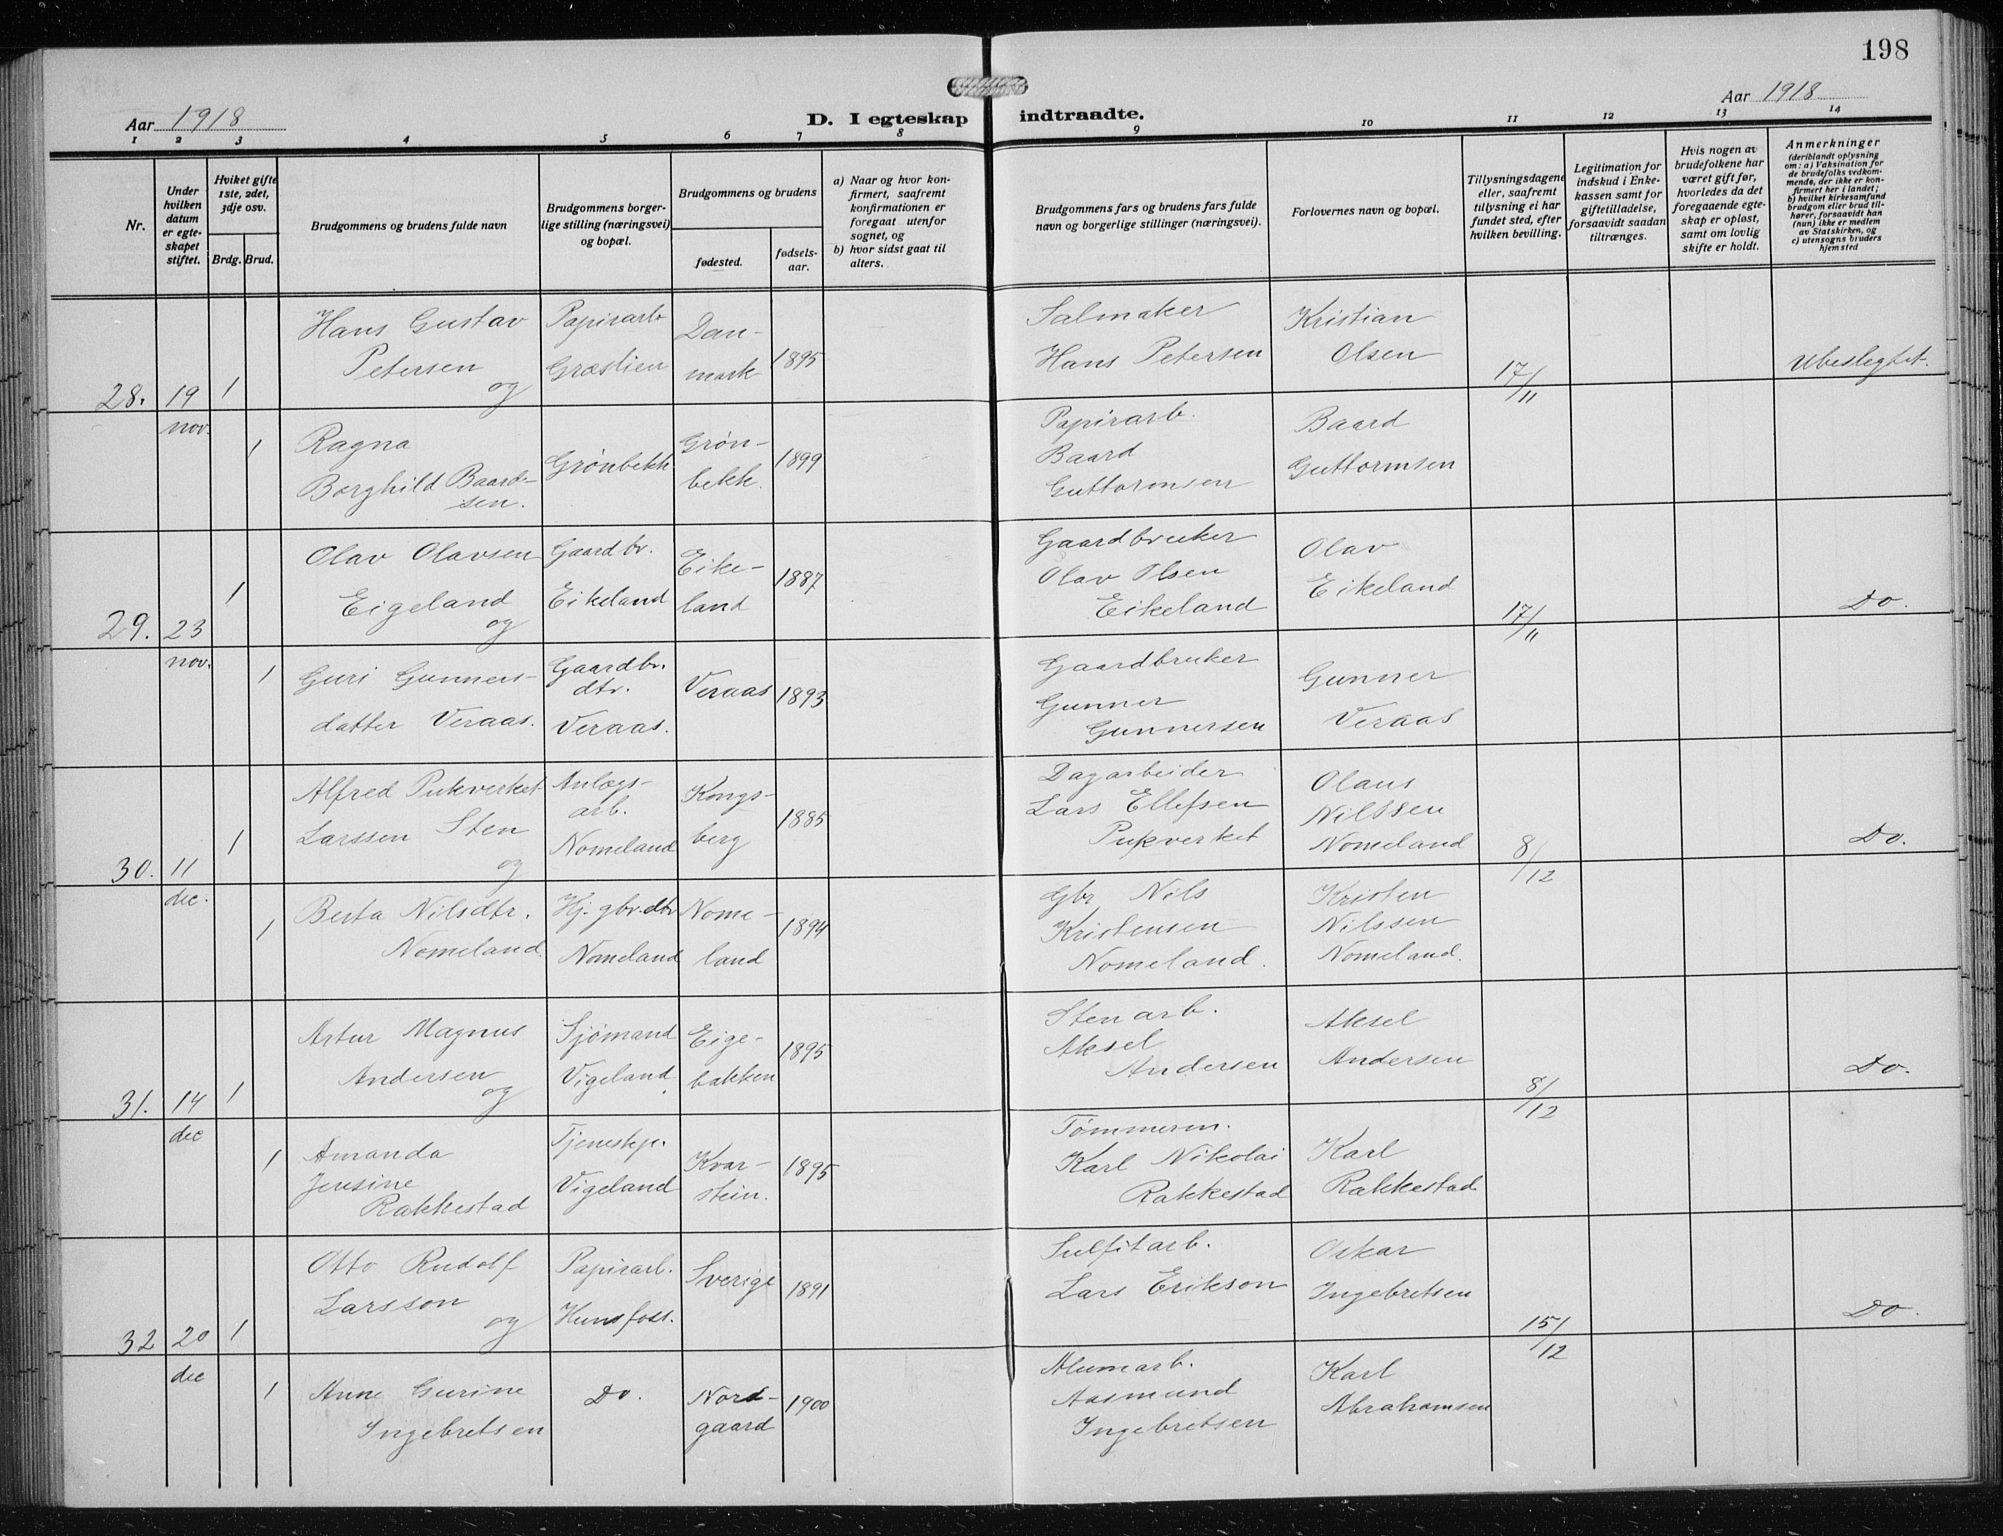 198
Aar 1918
Aar 1918
D. I egteskap indtraadte.
1 2 3 4 5 6 7 8 9 10 11 12 13 14
Nr.
Under hvilken datum er egteskapet stiftet.
Hvilket gifte 1ste, 2det, 3dje osv.
Brdg. Brud.
Brudgommens og brudens fulde navn
Brudgommens borgerlige stilling (næringsvei) og bopæl.
Brudgommens og brudens
fødested.
fødselsaar.
a) Naar og hvor konfirmert, saafremt konfirmationen er foregaat utenfor sognet, og
b) hvor sidst gaat til alters.
Brudgommens fars og brudens fars fulde navn og borgerlige stillinger (næringsvei).
Forlovernes navn og bopæl.
Tillysningsdagene eller, saafremt tillysning ei har fundet sted, efter hvilken bevilling.
Legitimation for indskud i Enkekassen samt for giftetilladelse, forsaavidt saadan tiltrænges.
Hvis nogen av brudefolkene har været gift før, hvorledes da det foregaaende egteskap er opløst, samt om lovlig skifte er holdt.
Anmerkninger
(deriblandt oplysning om: a) Vaksination for de brudefolks vedkommende, der ikke er konfirmert her i landet; b) hvilket kirkesamfund brudgom eller brud tilhører, forsaavidt han (hun) ikke er medlem av Statskirken, og c) utensogns bruders hjemsted
28. 19 nov. 1
Hans Gustav
Petersen
og
Papirarb.
Græstien
Danmark
1895
Salmaker
Hans Petersen
Kristian
Olsen
17/11
Ubeslegtet.
1
Ragna
Borghild Baardsen.
Grønbekk
Grønbekk.
1899
Papirarb.
Baard
Guttormsen
Baard
Guttormsen
29. 23 nov. 1
Olav Olavsen
Eigeland
og
Gaardbr.
Eikeland
Eikeland
1887
Gaardbruker
Olav Olsen
Eikeland
Olav
Eikeland
17/11
Do.
1
Guri Gunnersdatter Veraas.
Gaardbr.
dtr.
Veraas.
Veraas
1893
Gaardbruker
Gunner
Gunnersen
Gunner
Veraas
30. 11 dec. 1
Alfred Pukverket
Larssen Sten
og
Anlægsarb.
Nomeland
Kongsberg
1885
Dagarbeider
Lars Ellefsen
Pukverket
Olaus
Nilssen
Nomeland
8/12
Do.
1
Berta Nilsdtr.
Nomeland.
Hj. gbr. dtr
Nomeland
Nomeland
1894
Gbr Nils
Kristensen
Nomeland.
Kristen
Nilssen
Nomeland.
31. 14 dec 1
Artur Magnus
Andersen
og
Sjømand
Vigeland.
Eigebakken
1895
Stenarb.
Aksel
Andersen
Aksel
Andersen
8/12
Do.
1
Amanda
Jensine
Rakkestad
Tjenestp.
Vigeland
Kvarstein.
1895
Tømmerm.
Karl Nikolai
Rakkestad
Karl
Rakkestad
32 20 dec 1
Otto Rudolf
Larsson
og
Papirarb.
Hunsfoss.
Sverige
1891
Sulfitarb.
Lars Erikson
Oskar
Ingebretsen
15/12
Do.
1
Anne Gurine
Ingebretsen
Do.
Nordgaard
1900
Alumarb.
Aasmund
Ingebretsen
Karl
Abrahamsen